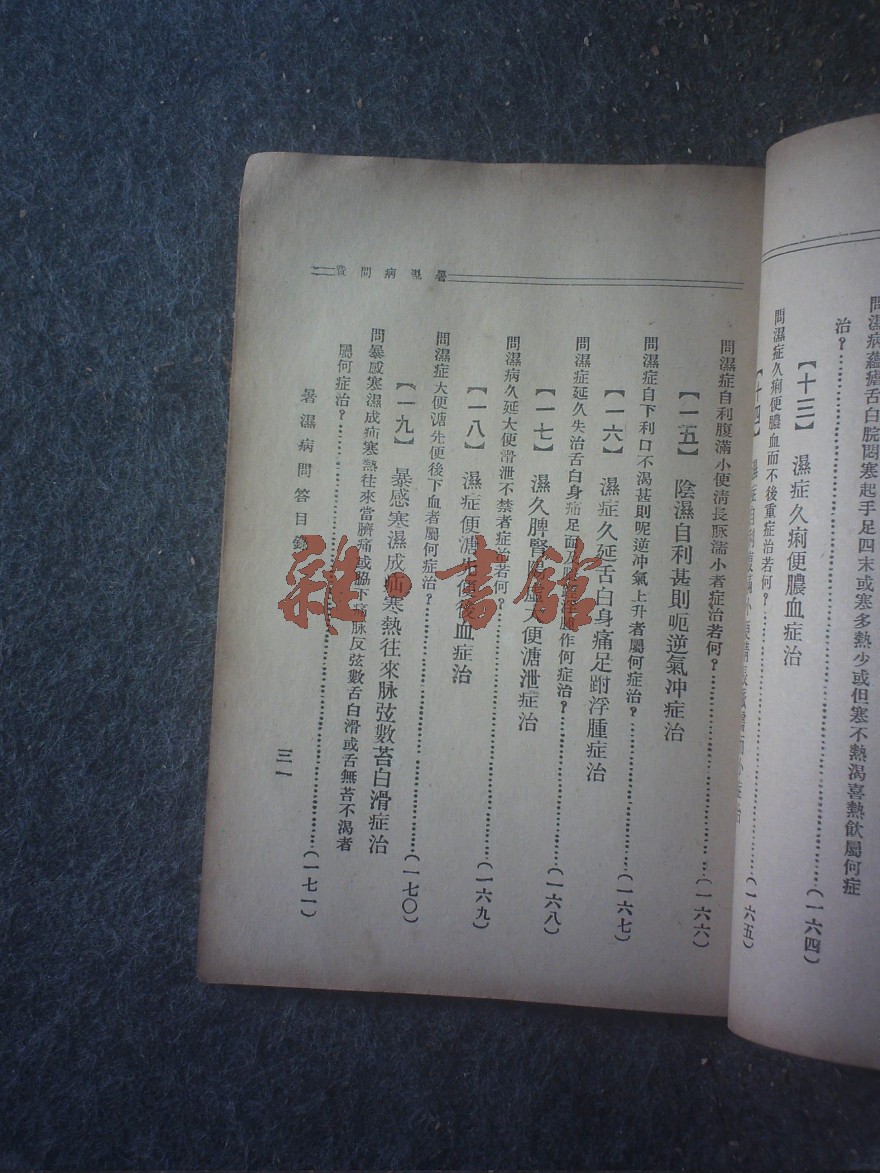 暑濕病問答
問濕病蘊癗舌白脘悶塞起手足四末或寒多熱少或但寒不熱渴喜熱飲屬何症
治？……(一六四)
【十三】 濕症久痢便膿血症治
問濕症久痢便膿血而不後重症治若何？……(一六五)
【十四】
問濕症自利腹滿小便淸長脈濡小者症治若何？……(一六六)
【一五】 陰濕自利甚則呃逆氣冲症治
問濕症自下利口不渴甚則呃逆冲氣上升者屬何症治？……(一六七)
【一六】 濕症久延舌白身痛足跗浮腫症治
問濕症延久失治舌白身痛足面及作何症治？……(一六八)
【一七】 濕久脾腎陽虛大便溏泄症治
問濕病久延大便滑泄不禁者症治若何？……(一六九)
【一八】 濕症便溏先便後血症治
問濕症大便溏先便後下血者屬何症治？……(一七〇)
【一九】 暴感寒濕成疝寒熱往來脉弦數苔白滑症治
問暴感寒濕成疝寒熱往來當臍痛或脇下痛脉反弦數舌白滑或舌無苔不渴者
屬何症治？……(一七一)
暑濕病問答目錄
三一
雜·書館